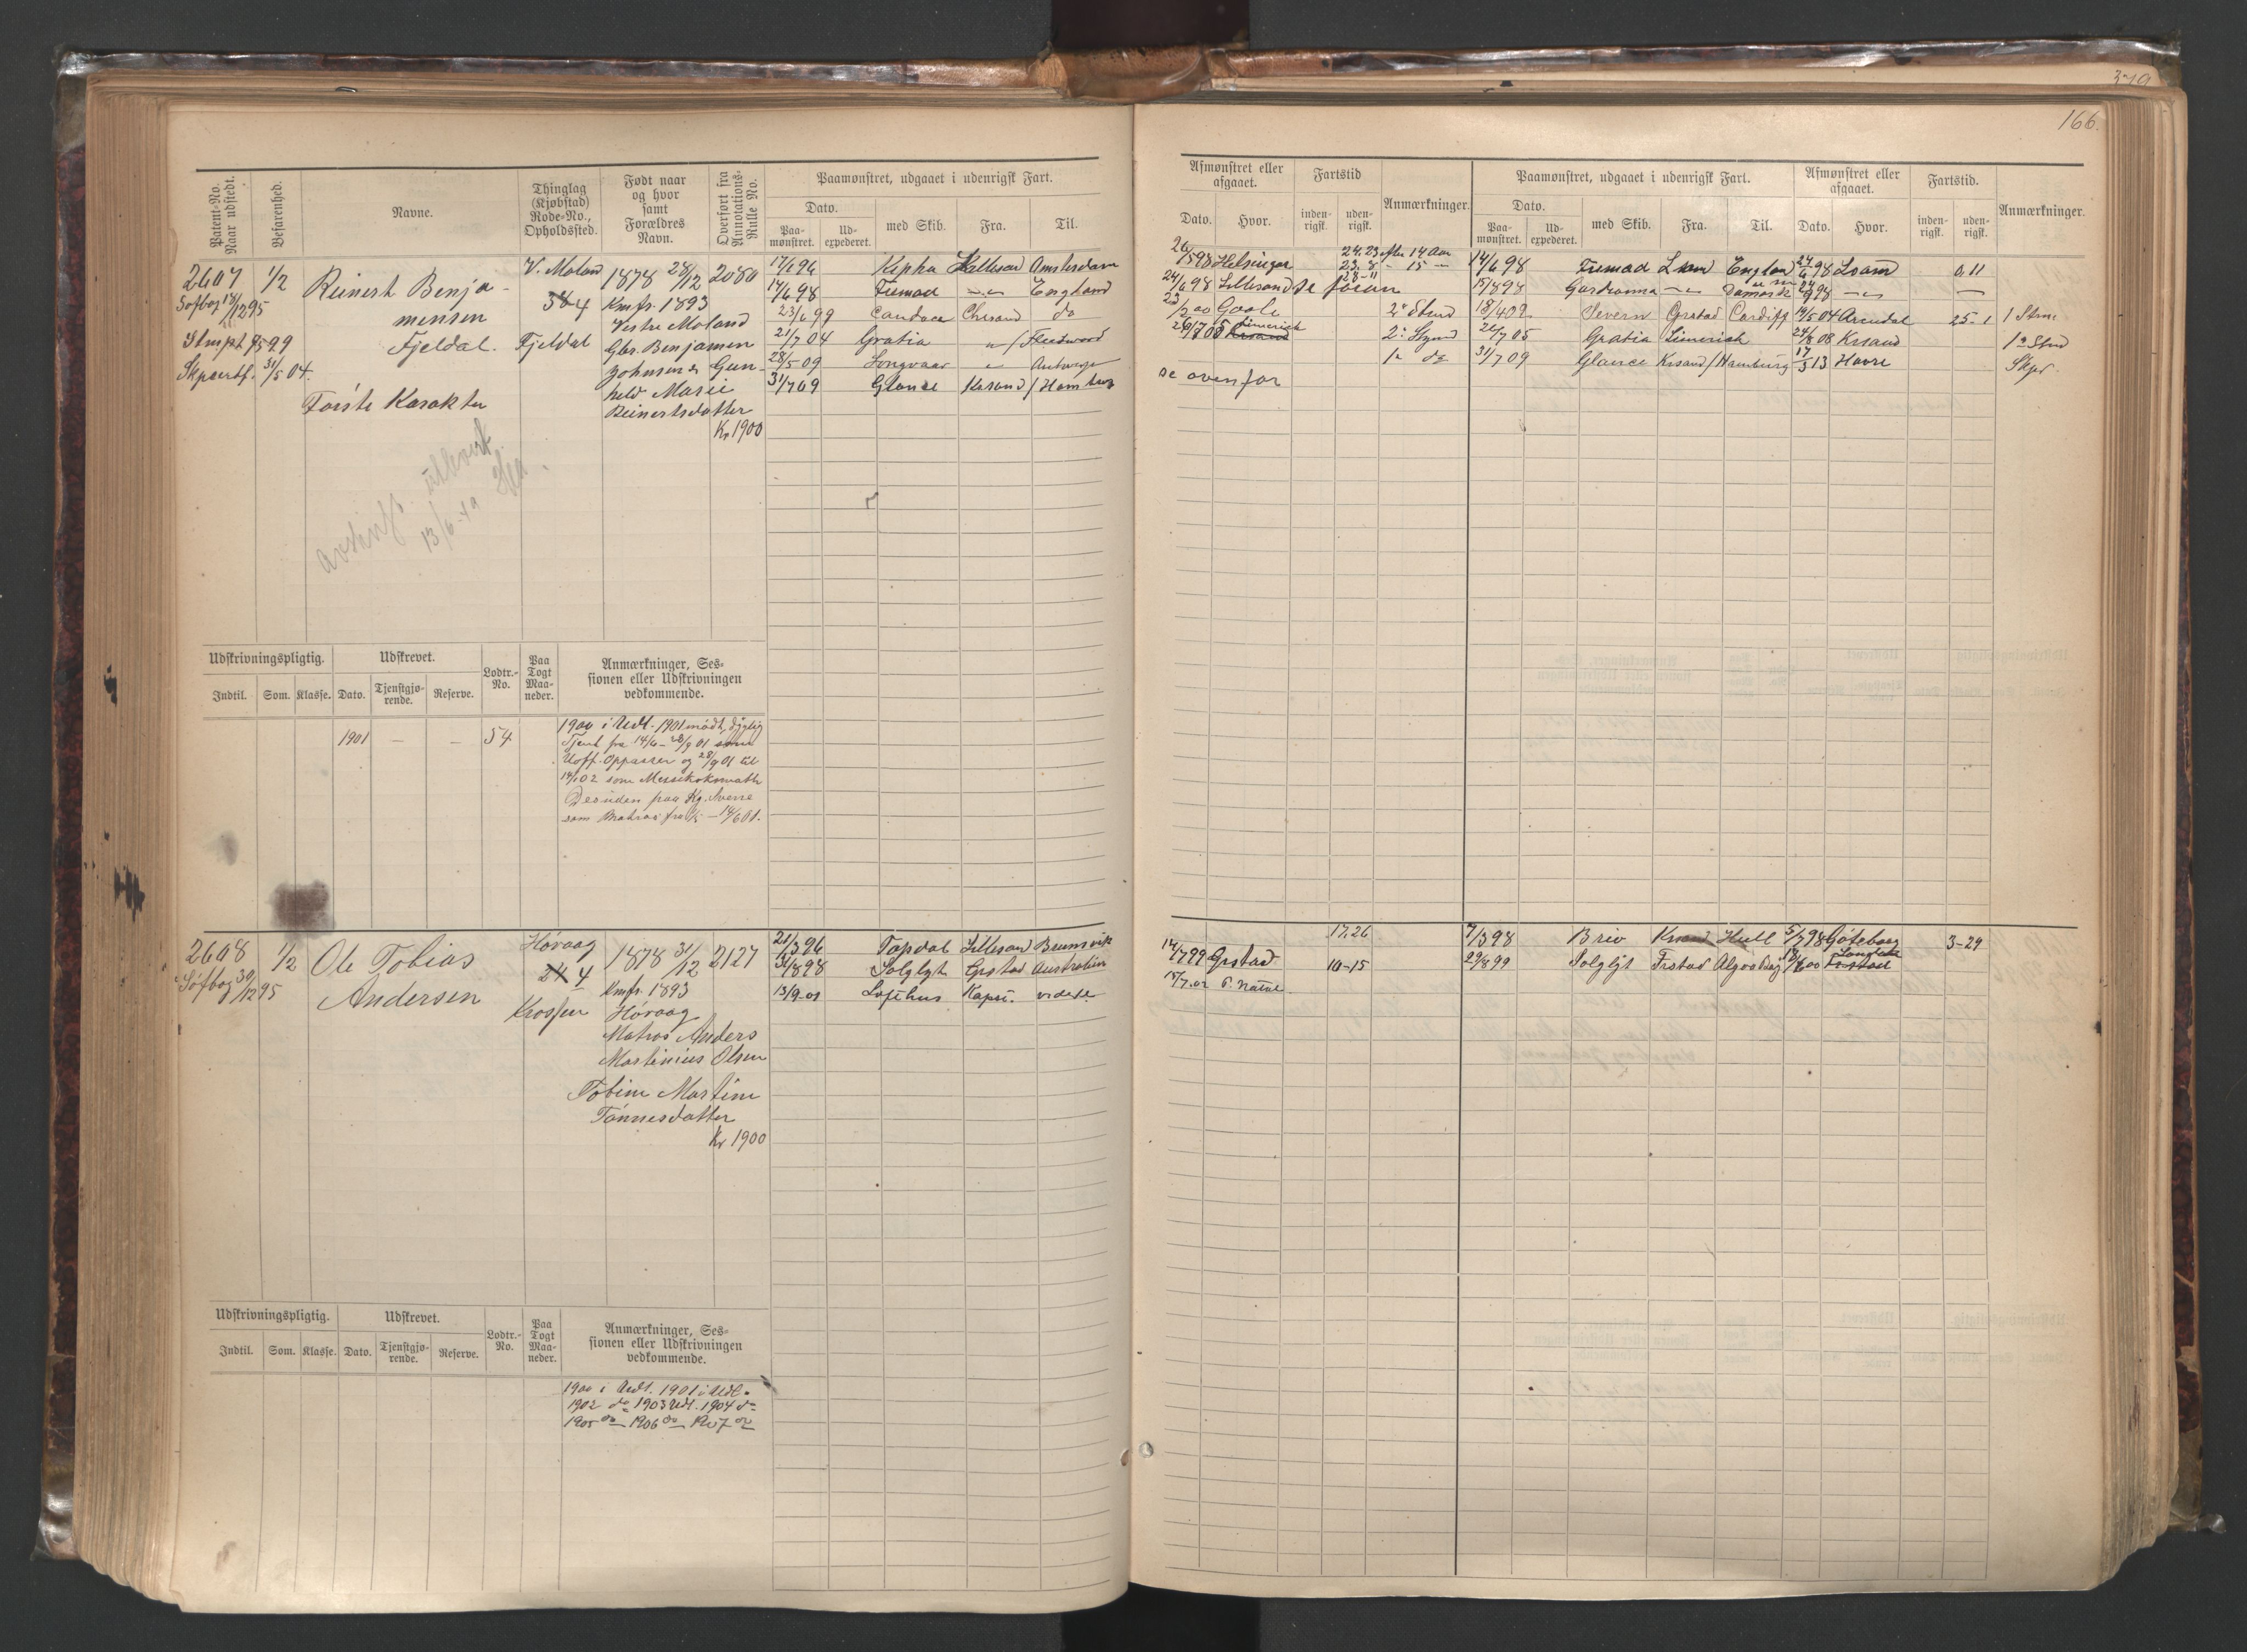 379
166.
Patent-No. Naar udstedt.
Befarenhed.
Navne.
Thinglag (Kjøbstad) Rode-No., Opholdssted.
Født naar og hvor samt Forældres Navn.
Overført fra Annotations-Rulle No.
Paamønstret, udgaaet i udenrigsk Fart.
Dato.
Paa-mønstret.
Ud-expederet.
med Skib.
Fra.
Til.
2607 1/2 Reinert Benja-
mensen
Fjeldal.
Første Karakter
Søfbog 18/12 95
Skpcertf. 31/5 04.
V. Moland
4
Fjeldal
1878 28/12 2080
Kmfr. 1893
Vestre Moland
Gbr. Benjamen
Johnsen & Gun-
hild Marie
Reinertsdatter
Kr 1900
17/6 96 Kepha Lillesand Amsterdam
14/6 98 Fremad England
23/6 99 Candace Chrsand do
21/7 04 Gratia Fleetwood
28/5 09 Songvaar Antwerpen
31/7 09 Glance Krsand / Hamburg
utlevert
13/6
Udskrivningspligtig.
Udskrevet.
Lodtr.-No.
Paa Togt Maa-neder.
Anmærkninger, Ses-
sionen eller Udskrivningen
vedkommende.
Indtil.
Som.
Klasse.
Dato.
Tjenstgjø-rende.
Reserve.
1901 — — 54
1900 i Udl. 1901 mødt, dygtig
Tjent fra 14/6 - 28/9 01 som
Uoff. Oppasser og 28/9 01 til
14/1 02 som Messekoksmath
Desuden paa Kg. Sverre
som Matros fra - 14/6 01.
2608 1/2 Ole Tobias
Andersen
Søfbog 30/12 95
Høvaag
24 4
Krossen
1878 31/12 2127
Kmfr. 1893
Høvaag
Matros Anders
Martinius Olsen
Tobine Martine
Tønnesdatter
Kr 1900
21/3 96 Topdal Lillesand Brunsvik
31/8 98 Solglyt Grstad Australien
13/9-01 Lofthus Kapst. videre
Udskrivningspligtig.
Udskrevet.
Lodtr.-No.
Paa Togt Maa-neder.
Anmærkninger, Ses-
sionen eller Udskrivningen
vedkommende.
Indtil.
Som.
Klasse.
Dato.
Tjenstgjø-rende.
Reserve.
1900 i Udl. 1901 i Udl.
1902 do 1903 Udl. 1904 do
1905 do 1906 do 1907 do
Afmønstret eller afgaaet.
Fartstid
Anmærkninger.
Paamønstret, udgaaet i udenrigsk Fart.
Afmønstret eller afgaaet.
Fartstid.
Anmærkninger.
Dato.
Hvor.
inden-rigsk.
uden-rigsk.
Dato.
Paa-mønstret.
Ud-expederet.
med Skib.
Fra.
Til.
Dato.
Hvor.
inden-rigsk.
uden-rigsk.
26/5 98 Helsingør 24.23 efter 14 Aar 14/6 98 Fremad Lsand England 24/6 98 Lsand 0,11
24/6 98 Lillesand se foran 15/8 98 Gardianna Danmark
23/2 00 Goole 2' Stmd 18/4 02 Severn Grstad Cardiff 14/5 04 Arendal 25-1 1 Stm
Limerick 2' Stymd 26/7 05 Gratia Limerick 24/8 08 Krsand 1ste Stmd
1' do 31/7 09 Glance Krsand/Hamburg 17/3 13 Havre Skpr.
se ovenfor
17,26 7/3 98 Brio Krsand Hull 5/7 98 Göteborg 3-29
14/7 99 Grstad 10-15 29/8 99 Solglyt Frstad Algoabay
15/7-02 P. Natal